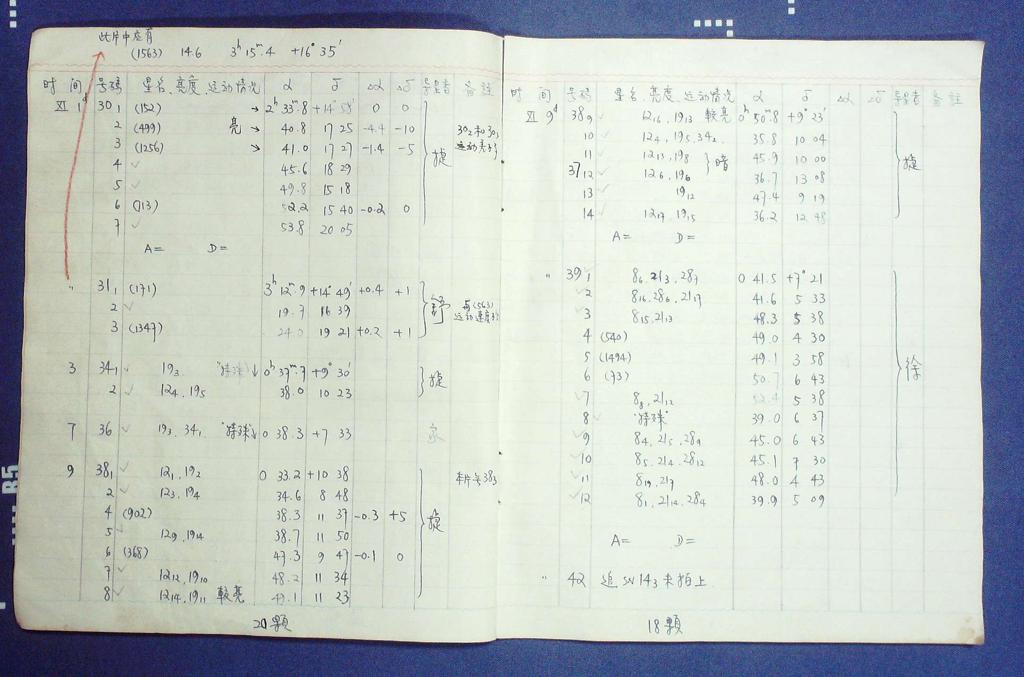 此片中应有
(1563) 14.6 3ʰ15ᵐ.4 +16°35′
时 间 号码 星名、亮度、运动情况 α δ Δα Δδ 导星者 备註
XI 1ᵈ 30₁ (152) → 2ʰ33ᵐ.8 +14°58′ 0 0
2 (499) 亮 40.8 17 25 -4.4 -10 30₂和30₃
3 (1256) → 41.0 17 27 -1.4 -5 捷
4 ✓ 45.6 18 29
5 ✓ 49.8 15 18
6 (713) 52.2 15 40 -0.2 0
7 ✓ 53.8 20 05
A= D=
" 31₁ (171) 3ʰ12ᵐ.9 +14°49′ +0.4 +1
2 ✓ 19.7 16 39 舒
3 (1347) 24.0 19 21 +0.2 +1
3 34₁ ✓ 19₃ ↓ 0ʰ37ᵐ.7 +9°30′
2 ✓ 12₄, 19₅ 38.0 10 23 捷
7 36 ✓ 19₃, 34₁ "特殊"↓ 0 38.3 +7 33
9 38₁ ✓ 12₁, 19₂ 0 33.2 +10 38 本片无38₃
2 ✓ 12₃, 19₄ 34.6 8 48
4 (902) 38.3 11 37 -0.3 +5 捷
5 ✓ 12₉, 19₁₄ 38.7 11 50
6 (368) 47.3 9 47 -0.1 0
7 ✓ 12₁₂, 19₁₀ 48.2 11 34
8 ✓ 12₁₄, 19₁₁ 較亮 49.1 11 23
20顆
时 间 号码 星名、亮度、运动情况 α δ Δα Δδ 导星者 备註
XI 9ᵈ 38₉ ✓ 12₁₆, 19₁₃ 較亮 0ʰ50ᵐ.8 +9°23′
10 ✓ 12₄, 19₅, 34₂ 35.8 10 04
11 ✓ 12₁₃, 19₈ 暗 45.9 10 00 捷
37₁₂ ✓ 12₆, 19₆ 36.7 13 08
13 ✓ 19₁₂ 47.4 9 19
14 ✓ 12₁₇, 19₁₅ 36.2 12 48
A= D=
" 39₁ ✓ 8₆, 21₃, 28₇ 0 41.5 +7°21
2 ✓ 8₁₆, 28₆, 21₁₇ 41.6 5 33
3 ✓ 8₁₅, 21₁₃ 48.3 5 38
4 (540) 49.0 4 30
5 (1494) 49.1 3 58
6 (73) 50.7 6 43 徐
7 ✓ 8₈, 21₁₂ 52.4 5 38
8 ✓ "特殊" 39.0 6 37
9 ✓ 8₄, 21₅, 28₉ 45.0 6 43
10 ✓ 8₅, 21₄, 28₁₂ 45.1 7 30
11 ✓ 8₁₉, 21₉ 48.0 4 43
12 ✓ 8₁, 21₁₄, 28₄ 39.9 5 09
A= D=
" 42 追SN14₃未拍上
18顆